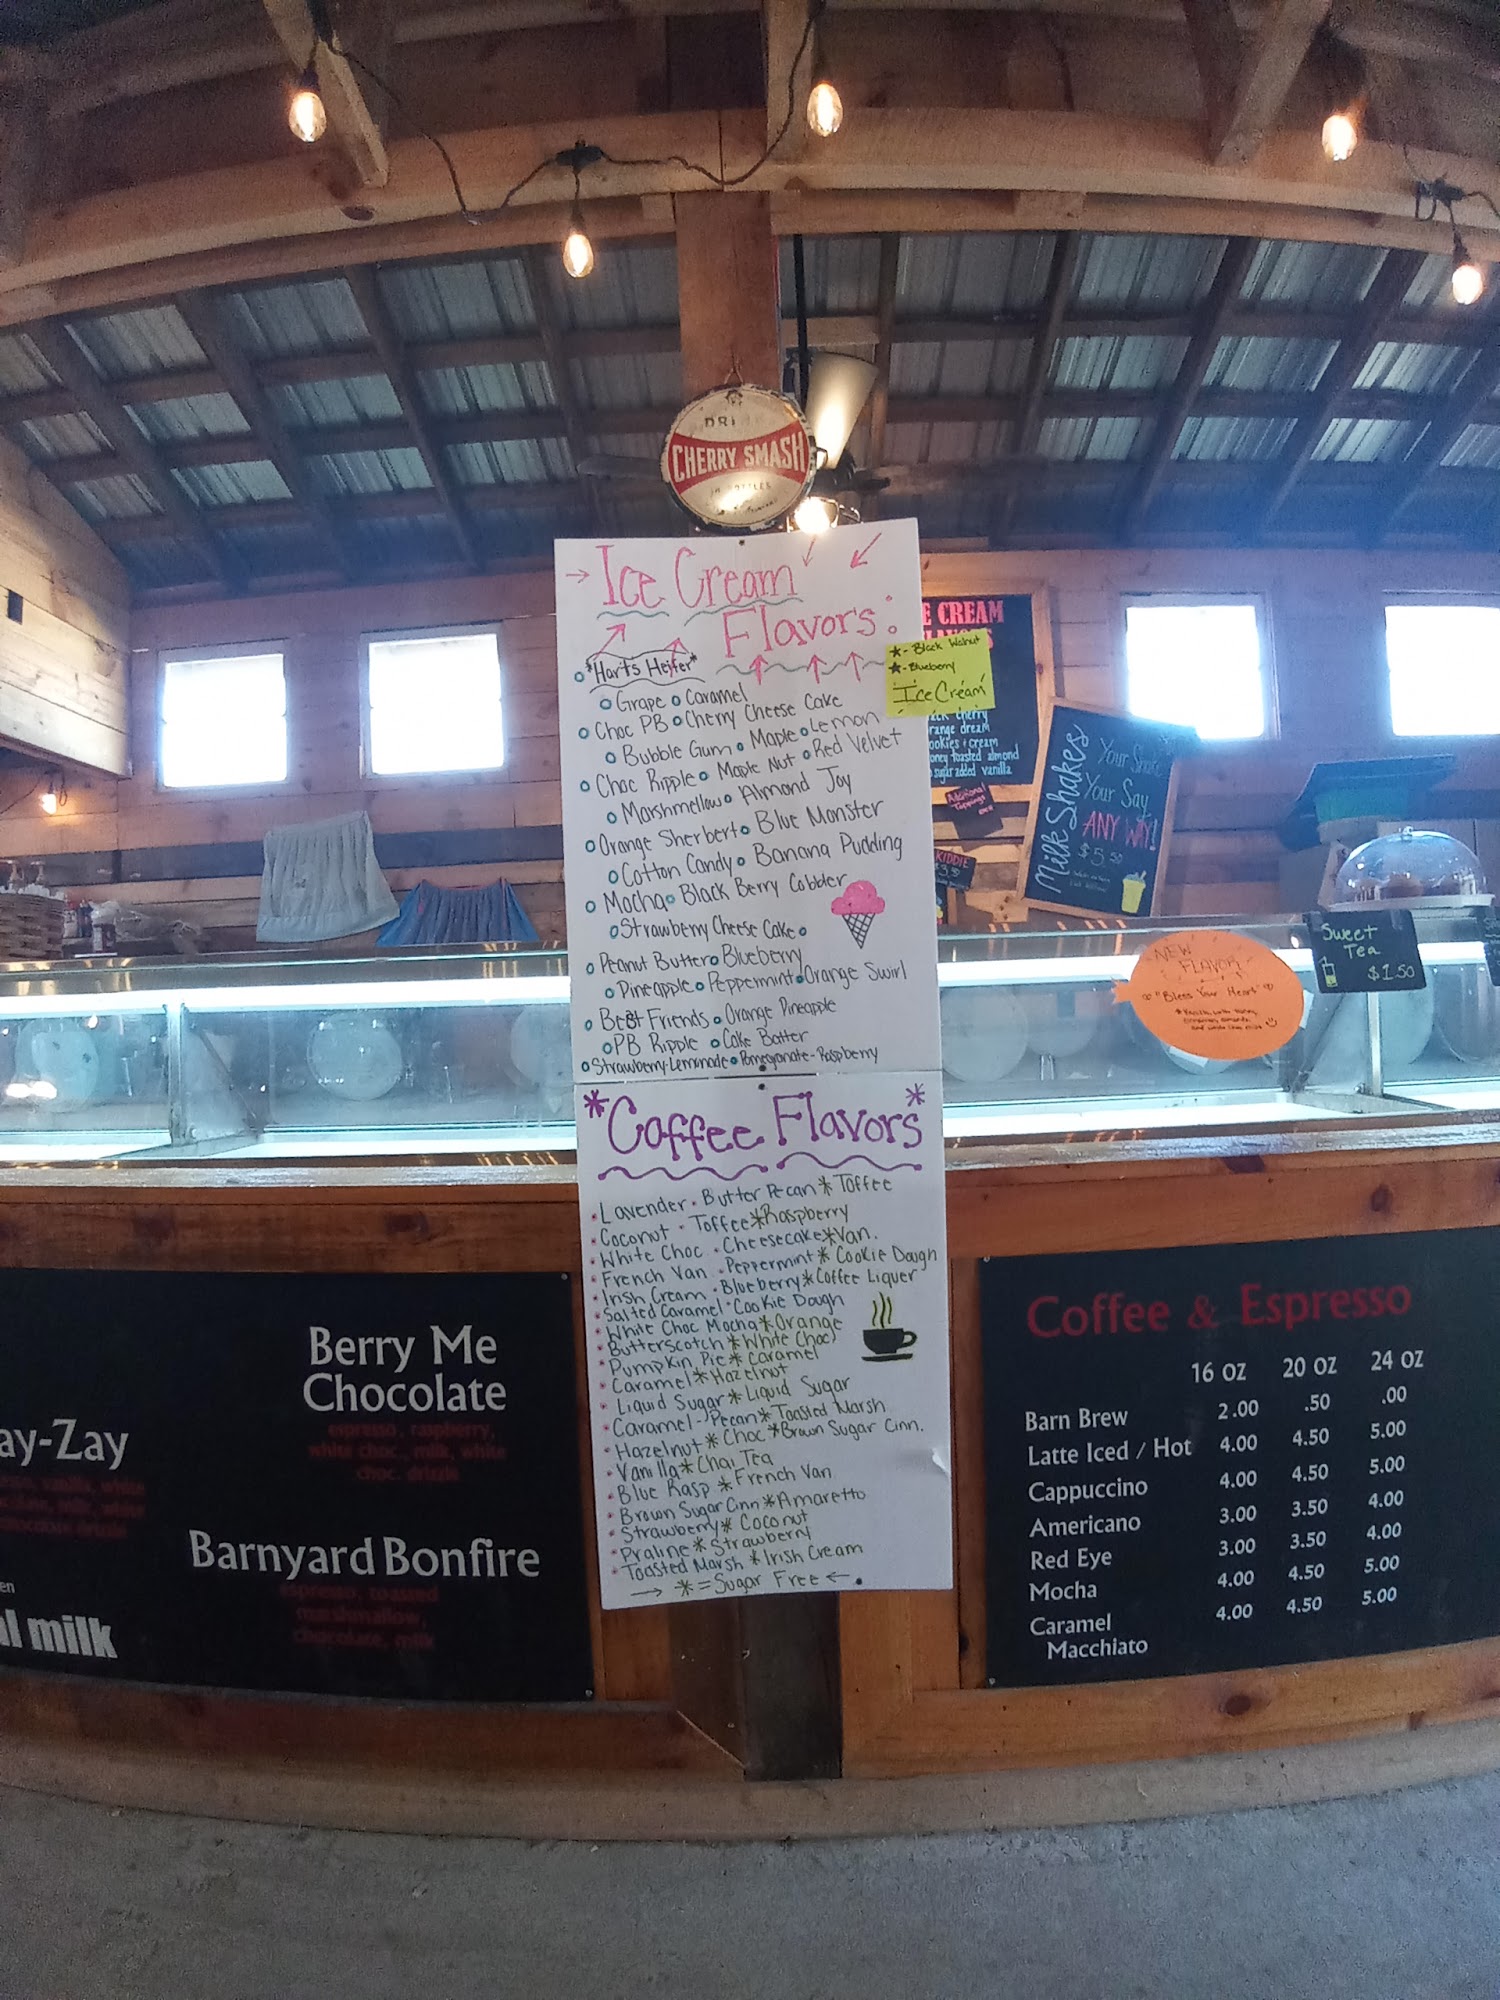 CHERRY SMASH
→ Ice Cream
Flavors:
*Harts Heifer*
Grape Caramel
Choc PB Cherry Cheese Cake
Bubble Gum Maple Lemon
Choc Ripple Maple Nut Red Velvet
Marshmellow Almond Joy
Orange Sherbert Blue Monster
Cotton Candy Banana Pudding
Mocha Black Berry Cobbler
Strawberry Cheese Cake
Peanut Butter Blueberry
Pineapple Peppermint Orange Swirl
Best Friends Orange Pineapple
PB Ripple Cake Batter
Strawberry-Lemonade Pomegranate-Raspberry
★- Black Walnut
★- Blueberry
Ice Cream
E CREAM
cherry
range dream
ookies + cream
oney toasted almond
sugar added vanilla
Additional
Toppings
KIDDIE
MilkShakes
Your Shake
Your Say
ANY WAY!
$5.50
NEW
FLAVOR
"Bless Your Heart"
Sweet
Tea
$1.50
*Coffee Flavors*
Lavender · Butter Pecan * Toffee
Coconut · Toffee * Raspberry
White Choc · Cheesecake * Van.
French Van · Peppermint * Cookie Dough
Irish Cream · Blueberry * Coffee Liquer
Salted Caramel · Cookie Dough
White Choc Mocha * Orange
Butterscotch * White Choc
Pumpkin Pie * Caramel
Caramel * Hazelnut
Liquid Sugar * Liquid Sugar
Caramel-Pecan * Toasted Marsh
Hazelnut * Choc * Brown Sugar Cinn.
Vanilla * Chai Tea
Blue Rasp * French Van
Brown Sugar Cinn * Amaretto
Strawberry * Coconut
Praline * Strawberry
Toasted Marsh * Irish Cream
→ * = Sugar Free ←
Berry Me
Chocolate
espresso, raspberry,
white choc, milk, white
choc. drizzle
ay-Zay
vanilla, white
milk, white
chocolate drizzle
Barnyard Bonfire
espresso, toasted
marshmallow,
chocolate, milk
en
al milk
Coffee & Espresso
16 OZ 20 OZ 24 OZ
Barn Brew 2.00 .50 .00
Latte Iced / Hot 4.00 4.50 5.00
Cappuccino 4.00 4.50 5.00
Americano 3.00 3.50 4.00
Red Eye 3.00 3.50 4.00
Mocha 4.00 4.50 5.00
Caramel
Macchiato 4.00 4.50 5.00